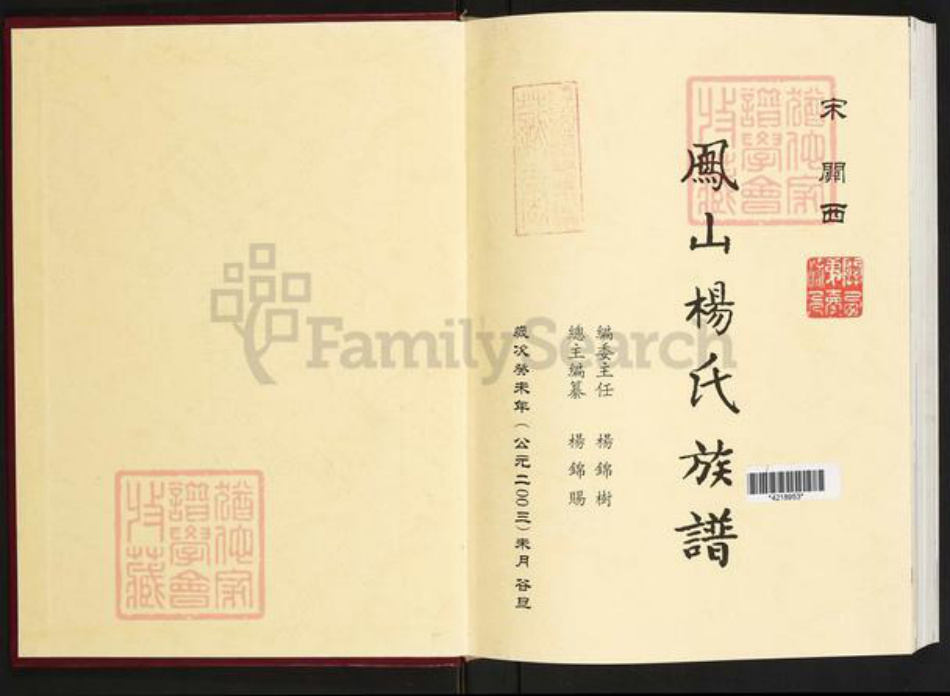 宋關西
鳳山楊氏族譜
編委主任 楊錦樹
總主編纂 楊錦賜
歲次癸未年(公元二〇〇三)未月 谷旦
猶他家
譜學會
收藏
猶他家
譜學會
收藏
*4218953*
FamilySearch